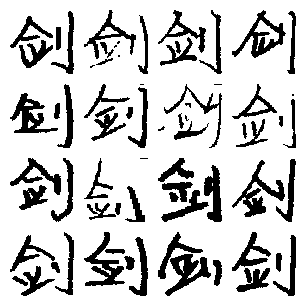 剑剑剑剑
剑剑剑剑
剑剑剑剑
剑剑剑剑